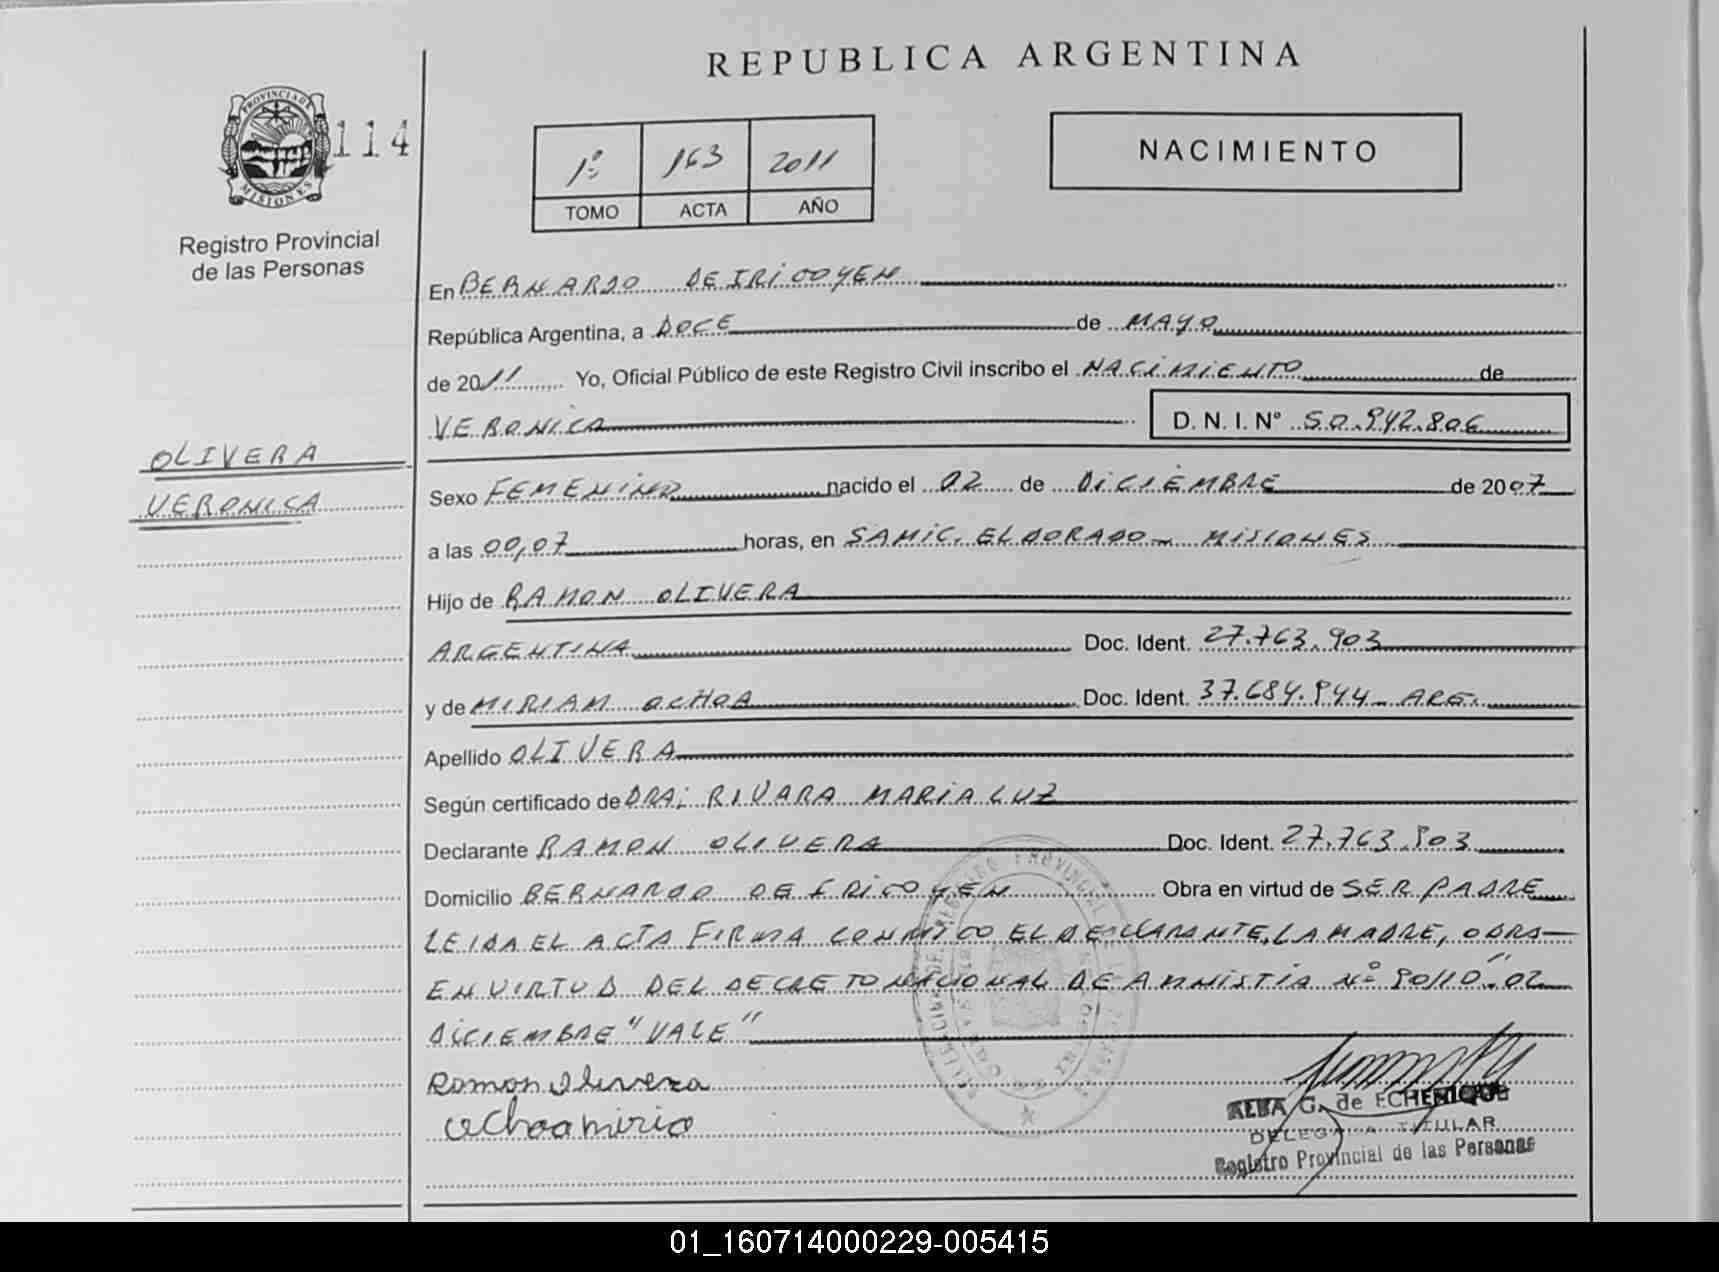 REPUBLICA ARGENTINA
PROVINCIA DE MISIONES
114
Registro Provincial
de las Personas
1º 163 2011
TOMO ACTA AÑO
NACIMIENTO
En BERNARDO DE IRIGOYEN
República Argentina, a DOCE de MAYO
de 2011 Yo, Oficial Público de este Registro Civil inscribo el NACIMIENTO de
VERONICA D. N. I. Nº 50.942.806
OLIVERA
VERONICA
Sexo FEMENINO nacido el 02 de DICIEMBRE de 2007
a las 00,07 horas, en SAMIC. ELDORADO - MISIONES
Hijo de RAMON OLIVERA
ARGENTINA Doc. Ident. 27.763.903
y de MIRIAM OCHOA Doc. Ident. 37.684.944 - ARG.
Apellido OLIVERA
Según certificado de DRA; RIVARA MARIA LUZ
Declarante RAMON OLIVERA Doc. Ident. 27.763.903
Domicilio BERNARDO DE IRIGOYEN Obra en virtud de SER PADRE
LEIDA EL ACTA FIRMA CONMIGO EL DECLARANTE, LA MADRE, OBRA
EN VIRTUD DEL DECRETO NACIONAL DE AMNISTIA Nº 90/10" 02
DICIEMBRE "VALE"
Ramon Olivera
Ochoa miria
ALBA G. de ECHENIQUE
DELEGADA TITULAR
Registro Provincial de las Personas
01_160714000229-005415